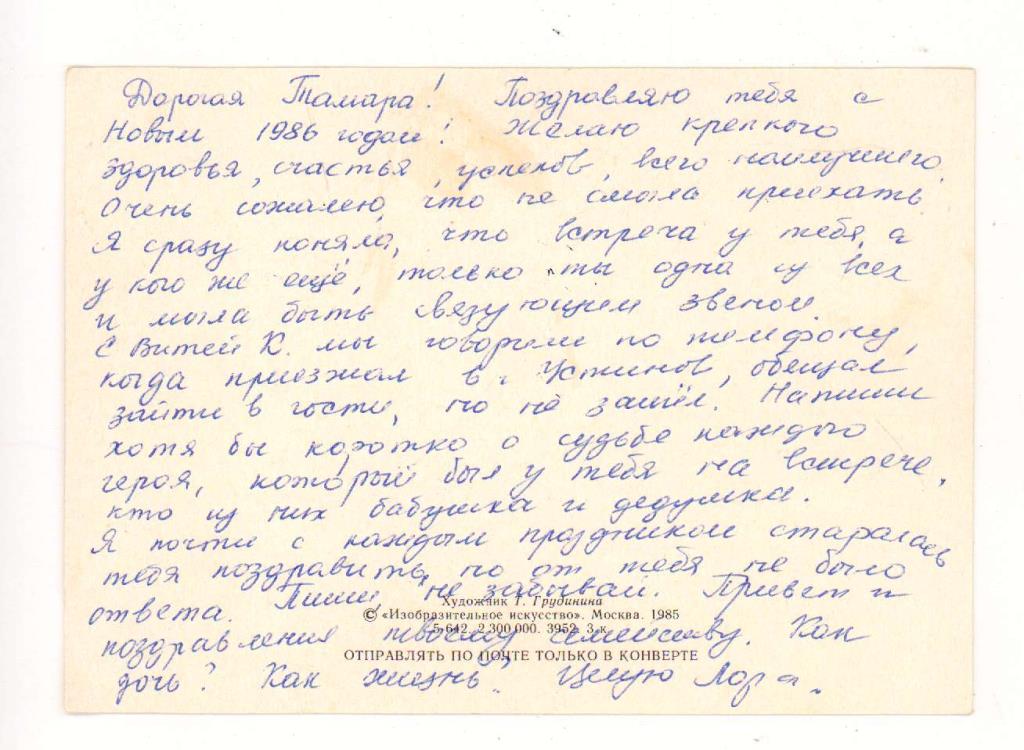 Дорогая Тамара! Поздравляю тебя с
Новым 1986 годом! Желаю крепкого
здоровья, счастья, успехов, всего наилучшего.
Очень сожалею, что не смогла приехать.
Я сразу поняла, что встреча у тебя, а
у кого же ещё, только ты одна у всех
и могла быть связующим звеном.
С Витей К. мы говорили по телефону,
когда приезжал в г. Устинов, обещал
зайти в гости, но не зашёл. Напиши
хотя бы коротко о судьбе каждого
героя, который был у тебя на встрече,
кто из них бабушка и дедушка.
Я почти с каждым праздником старалась
тебя поздравить, но от тебя не было
ответа. Пиши, не забывай. Привет и
Художник Т. Грудинина
© «Изобразительное искусство». Москва. 1985
5-642. 2 300 000. 3952. 3 к.
поздравления твоему семейству. Как
ОТПРАВЛЯТЬ ПО ПОЧТЕ ТОЛЬКО В КОНВЕРТЕ
дочь? Как жизнь. Целую Лора.